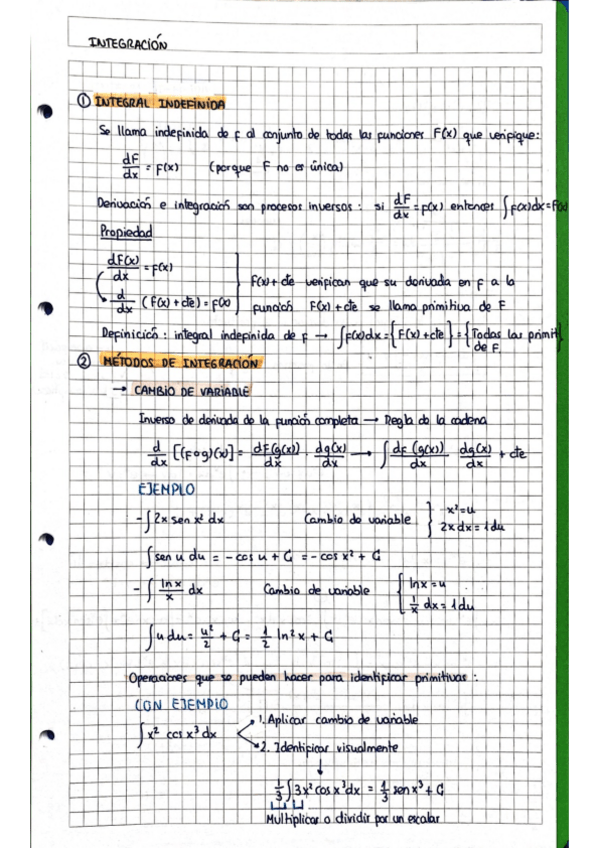 INTEGRACIÓN
① INTEGRAL INDEFINIDA
Se llama indefinida de f al conjunto de todas las funciones F(x) que verifique:
dF/dx = f(x) (porque F no es única)
Derivación e integración son procesos inversos: si dF/dx = f(x) entonces ∫f(x)dx = F(x)
Propiedad
dF(x)/dx = f(x)
d/dx (F(x) + cte) = f(x)
F(x) + cte verifican que su derivada en f a la
función F(x) + cte se llama primitiva de F
Definición: integral indefinida de f → ∫f(x)dx = {F(x) + cte} = {Todas las primit
de F.
② MÉTODOS DE INTEGRACIÓN
→ CAMBIO DE VARIABLE
Inverso de derivada de la función completa → Regla de la cadena
d/dx [(f∘g)(x)] = dF(g(x))/dx · dg(x)/dx → ∫ dF(g(x))/dx dg(x)/dx + cte
EJEMPLO
- ∫2x sen x² dx Cambio de variable { x² = u
2x dx = 1 du
∫sen u du = - cos u + C = - cos x² + C
- ∫ ln x/x dx Cambio de variable { ln x = u
1/x dx = 1 du
∫u du = u²/2 + C = 1/2 ln² x + C
Operaciones que se pueden hacer para identificar primitivas:
CON EJEMPLO
∫x² cos x³ dx
1. Aplicar cambio de variable
2. Identificar visualmente
↓
1/3 ∫3x² cos x³ dx = 1/3 sen x³ + C
Multiplicar o dividir por un escalar